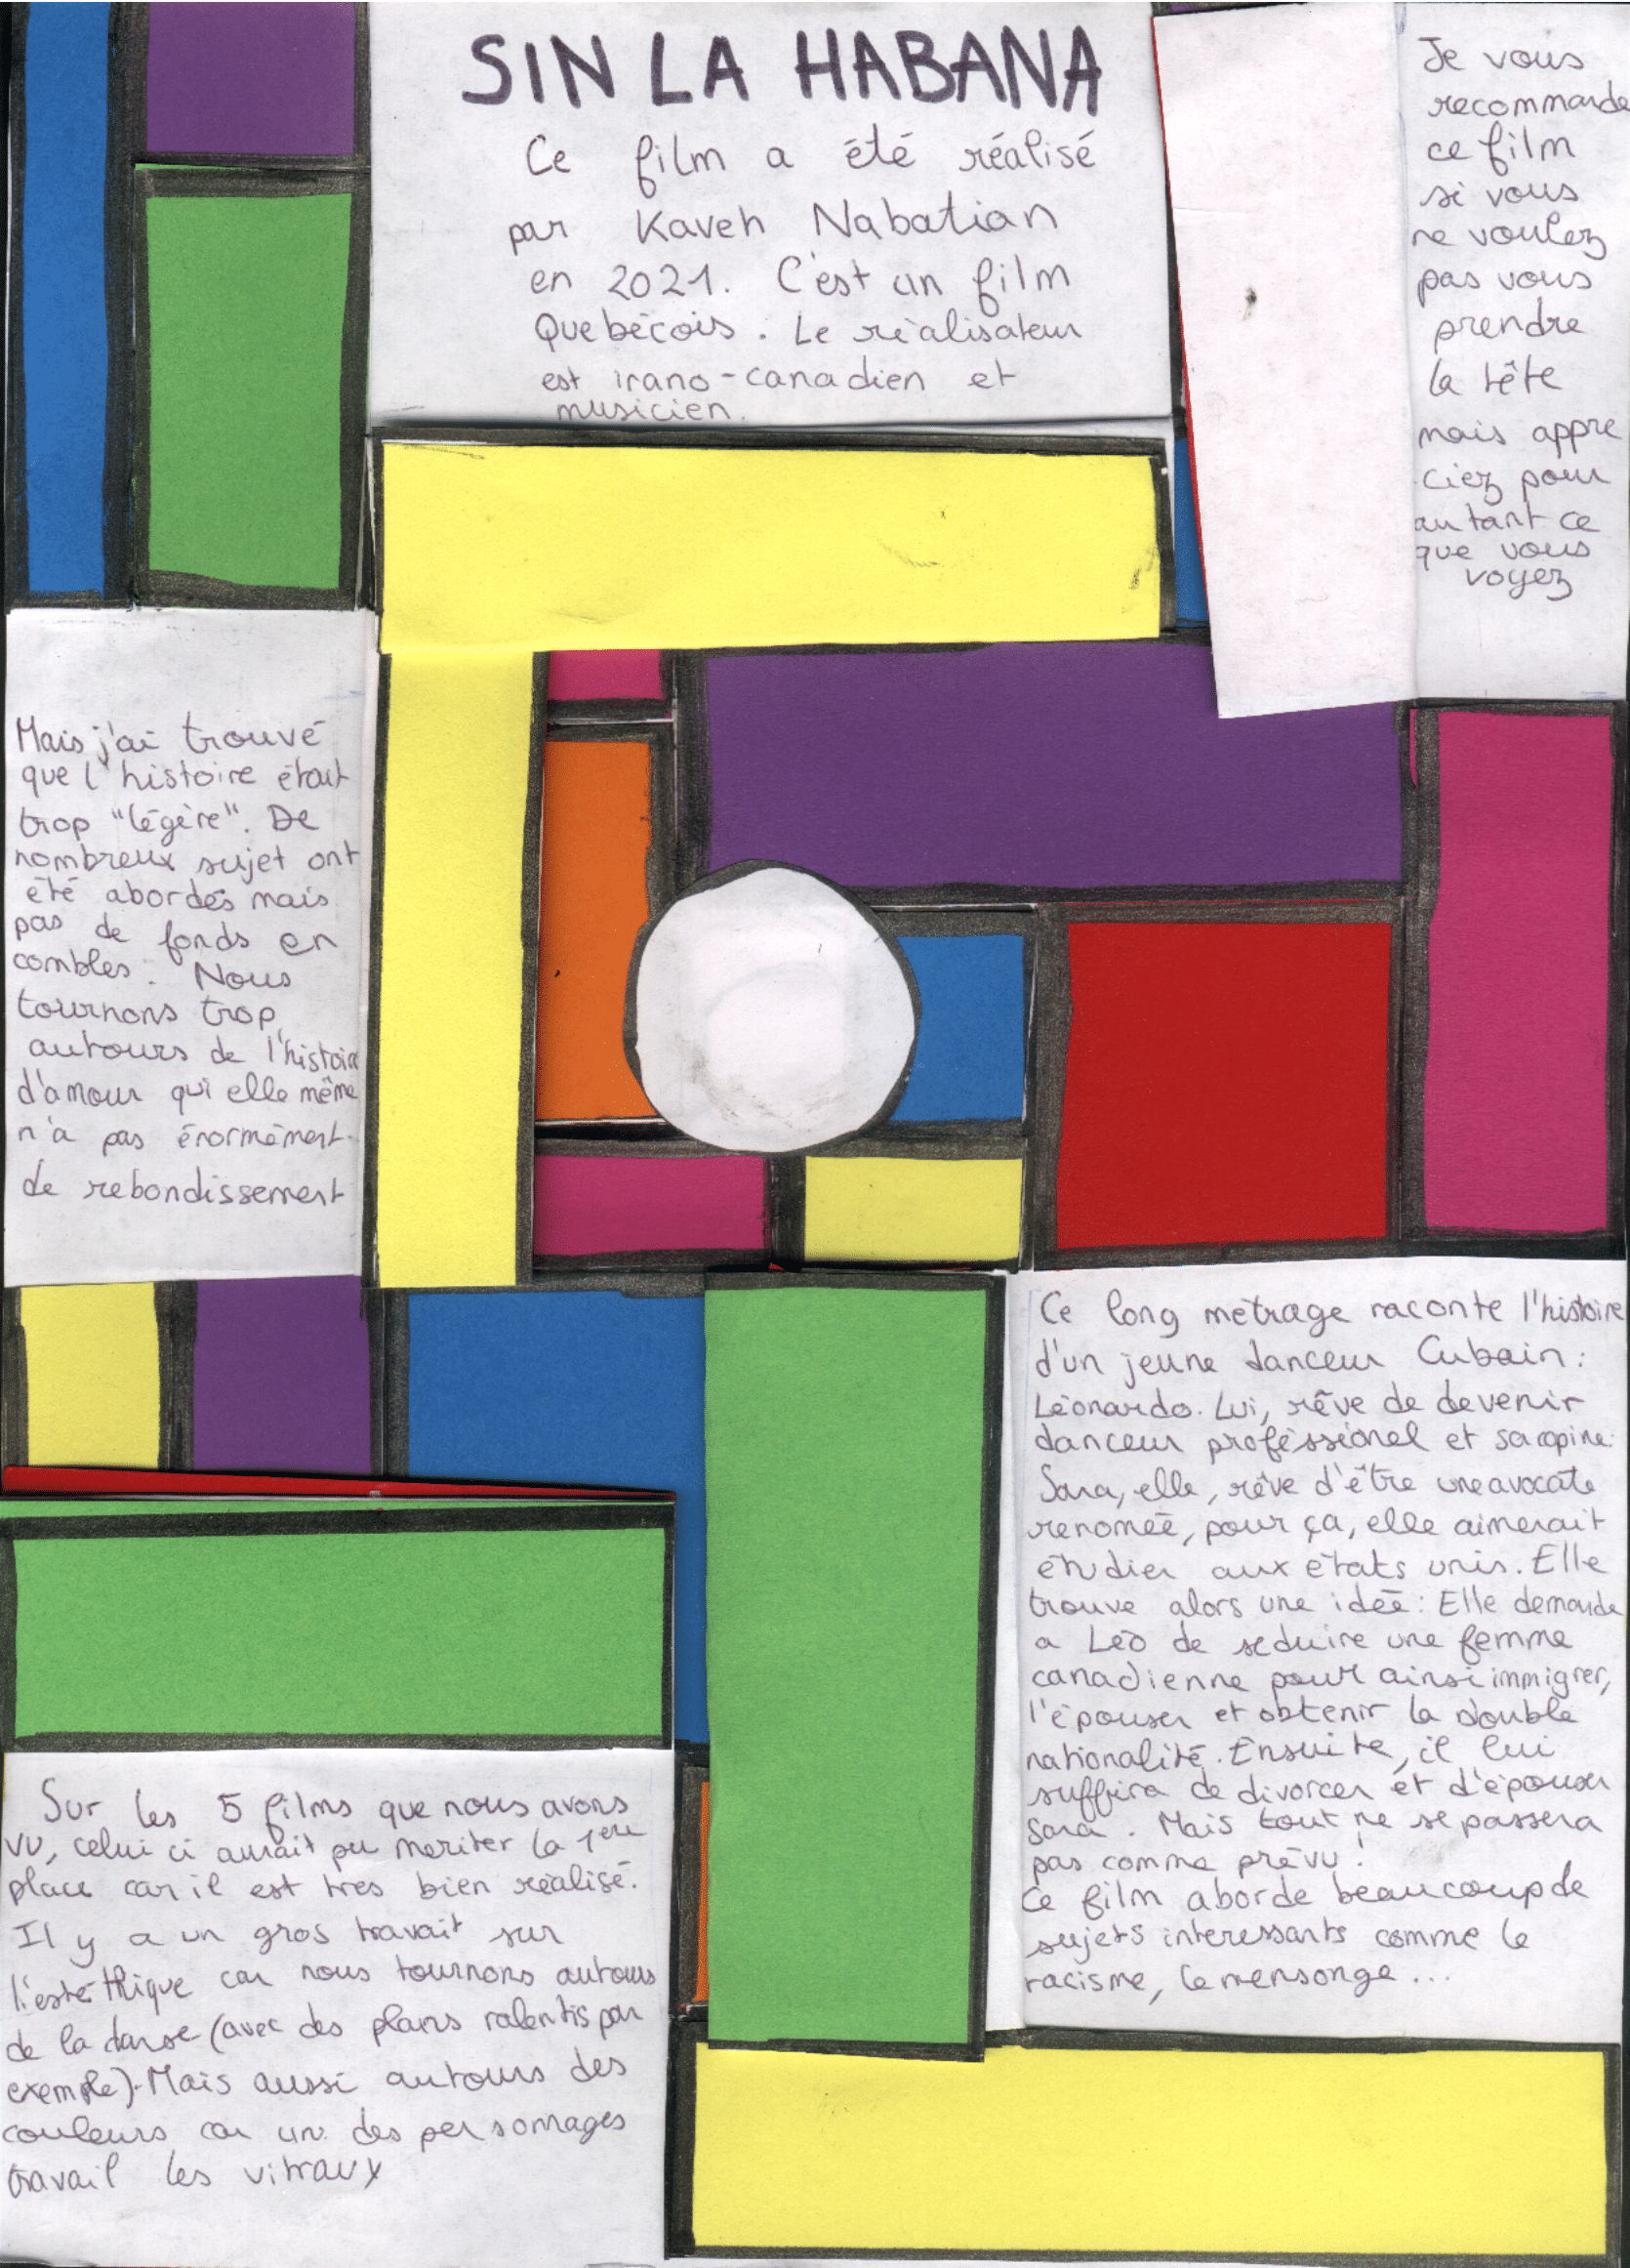 SIN LA HABANA
Ce film a été réalisé
par Kaveh Nabatian
en 2021. C'est un film
Quebécois. Le réalisateur
est irano-canadien et
musicien.
Je vous
recommande
ce film
si vous
ne voulez
pas vous
prendre
la tête
mais appre
ciez pour
autant ce
que vous
voyez
Mais j'ai trouvé
que l'histoire était
trop "légère". De
nombreux sujet ont
été abordés mais
pas de fonds en
combles. Nous
tournons trop
autours de l'histoire
d'amour qui elle même
n'a pas énormément
de rebondissement
Ce long métrage raconte l'histoire
d'un jeune danceur Cubain :
Léonardo. Lui, rêve de devenir
danceur proféssionel et sa copine
Sara, elle, rêve d'être une avocate
renomée, pour ça, elle aimerait
étudier aux états unis. Elle
trouve alors une idée : Elle demande
a Léo de seduire une femme
canadienne pour ainsi immigrer,
l'épouser et obtenir la double
nationalité. Ensuite, il lui
suffira de divorcer et d'épouser
Sara. Mais tout ne se passera
pas comme prévu !
Ce film aborde beaucoup de
sujets interessants comme le
racisme, le mensonge ...
Sur les 5 films que nous avons
vu, celui ci aurait pu meriter la 1ère
place car il est tres bien réalisé.
Il y a un gros travait sur
l'estéthique car nous tournons autours
de la danse (avec des plans ralentis par
exemple). Mais aussi autours des
couleurs car un des personnages
travail les vitraux